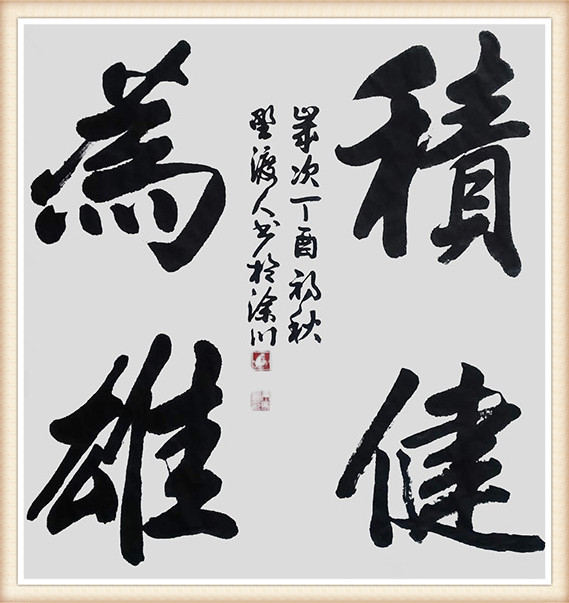 積健
為雄
歲次丁酉初秋
野渡人书於涂川